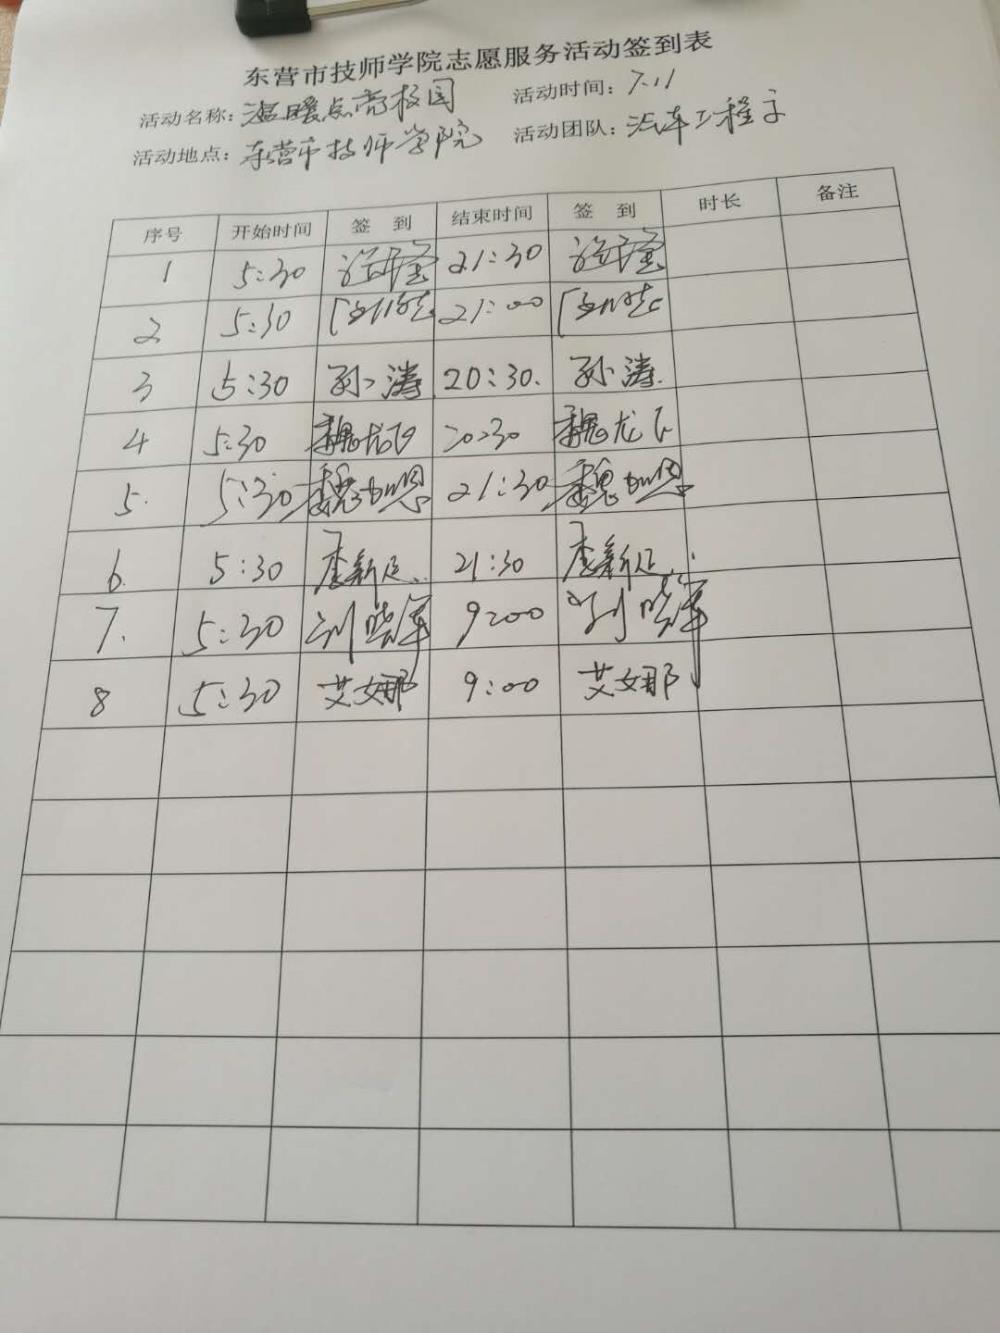 东营市技师学院志愿服务活动签到表
活动名称：温暖点亮校园 活动时间：7.11
活动地点：东营市技师学院 活动团队：汽车工程学
序号 开始时间 签 到 结束时间 签 到 时长 备注
1 5:30 21:30
2 5:30 21:00
3 5:30 孙涛 20:30. 孙涛.
4 5:30 魏龙飞 20:30 魏龙飞
5. 5:30 魏加恩 21:30 魏加恩
6. 5:30 李新 21:30 李新
7. 5:30 刘晓军 9:00 刘晓军
8 5:30 艾娜 9:00 艾娜